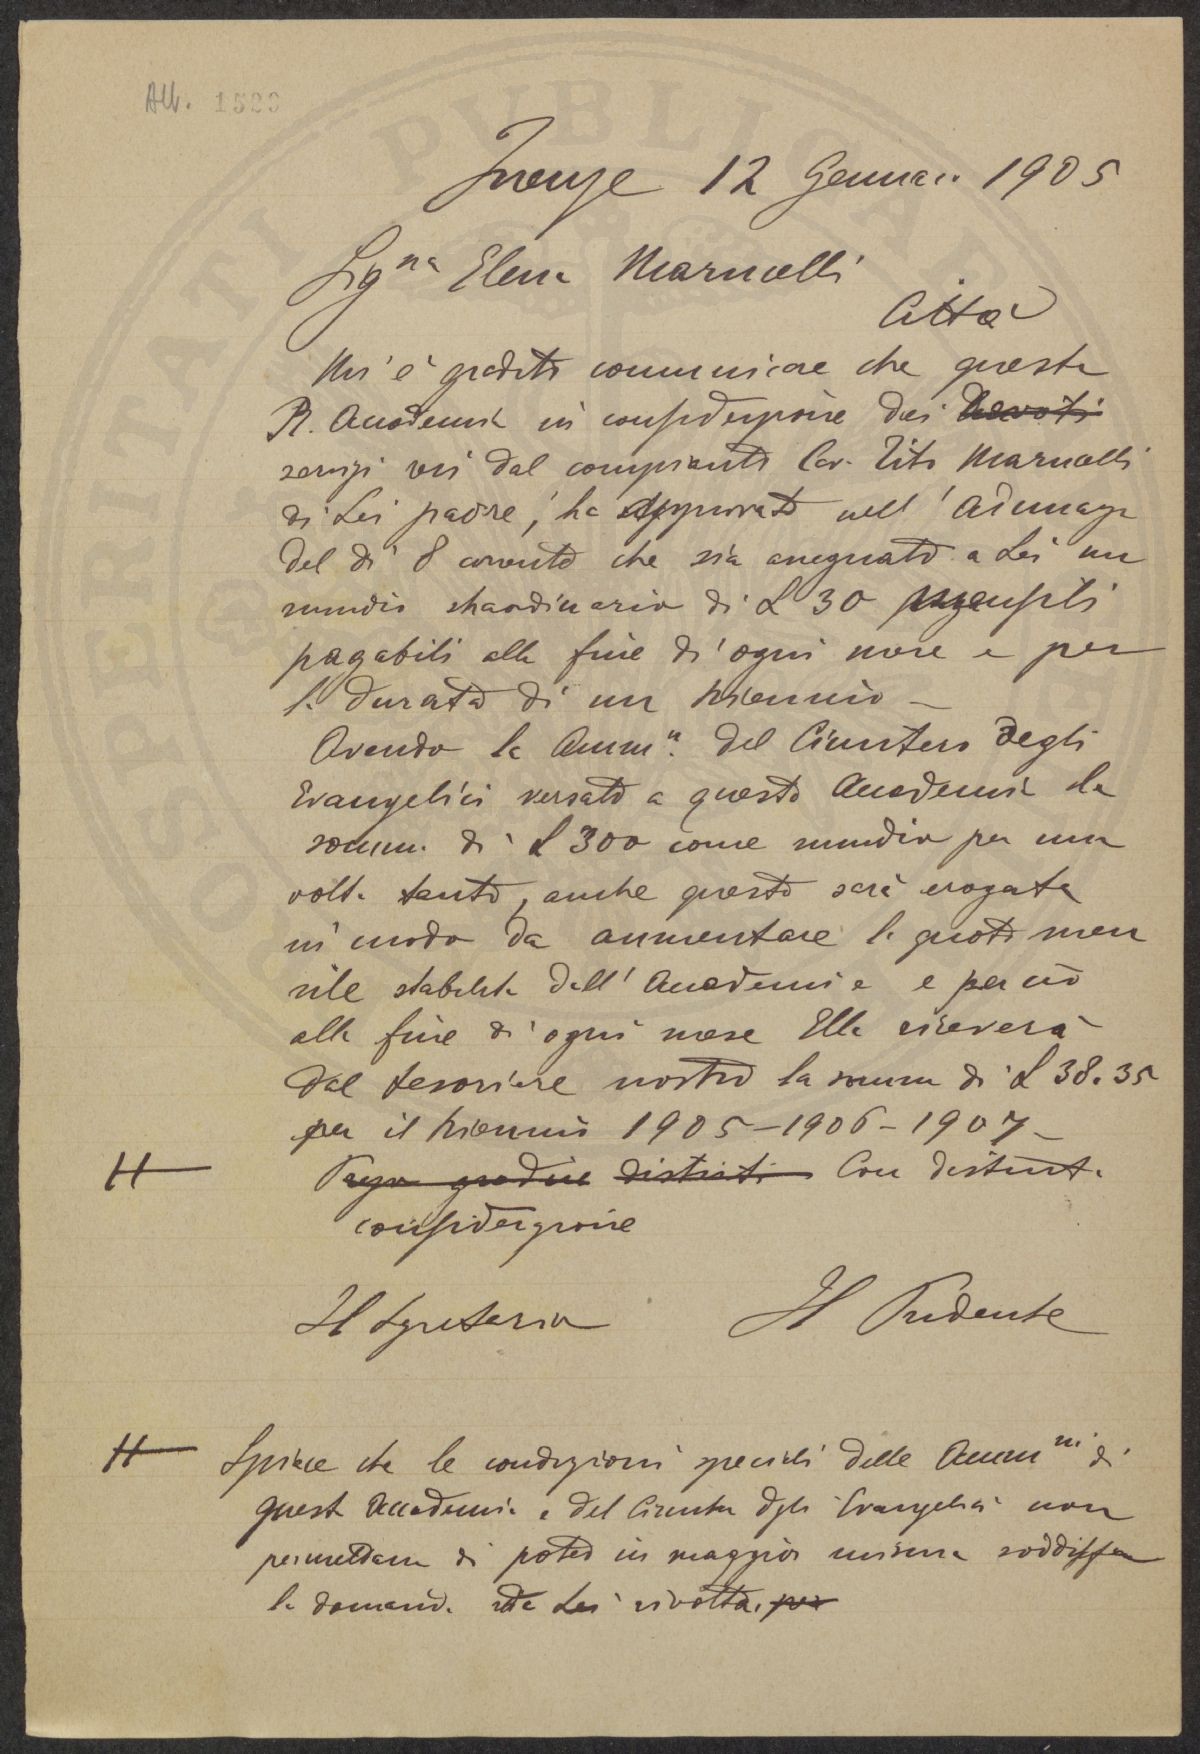 All. 1520
Firenze 12 Gennaio 1905
Signa Elena Marucelli
Città
Mi è gradito comunicare che questa
R. Accademia in considerazione dei devoti
servizi resi dal compianto Cav. Tito Marucelli
di Lei padre, ha approvato nell'Adunaza
del dì 8 corrente che sia assegnato a Lei un
sussidio straordinario di L 30 mensili
pagabili alla fine di ogni mese e per
la durata di un triennio —
Avendo la Ammne. del Cimitero degli
Evangelici versato a questa Accademia la
somma di L 300 come sussidio per una
volta tanto, anche questo sarà erogata
in modo da aumentare la quota men
sile stabilita dall'Accademia e perciò
alla fine di ogni mese Ella riceverà
dal tesoriere nostro la somma di L 38.35
per il triennio 1905-1906-1907 —
H Prego gradire distinti Con distinta
considerazione
Il Segretario Il Presidente
H Spiace che le condizioni speciali delle Ammni di
questa Accademia e del Cimitero degli Evangelici non
permettano di poter in maggior misura soddisfare
la domanda da Lei rivolta. per